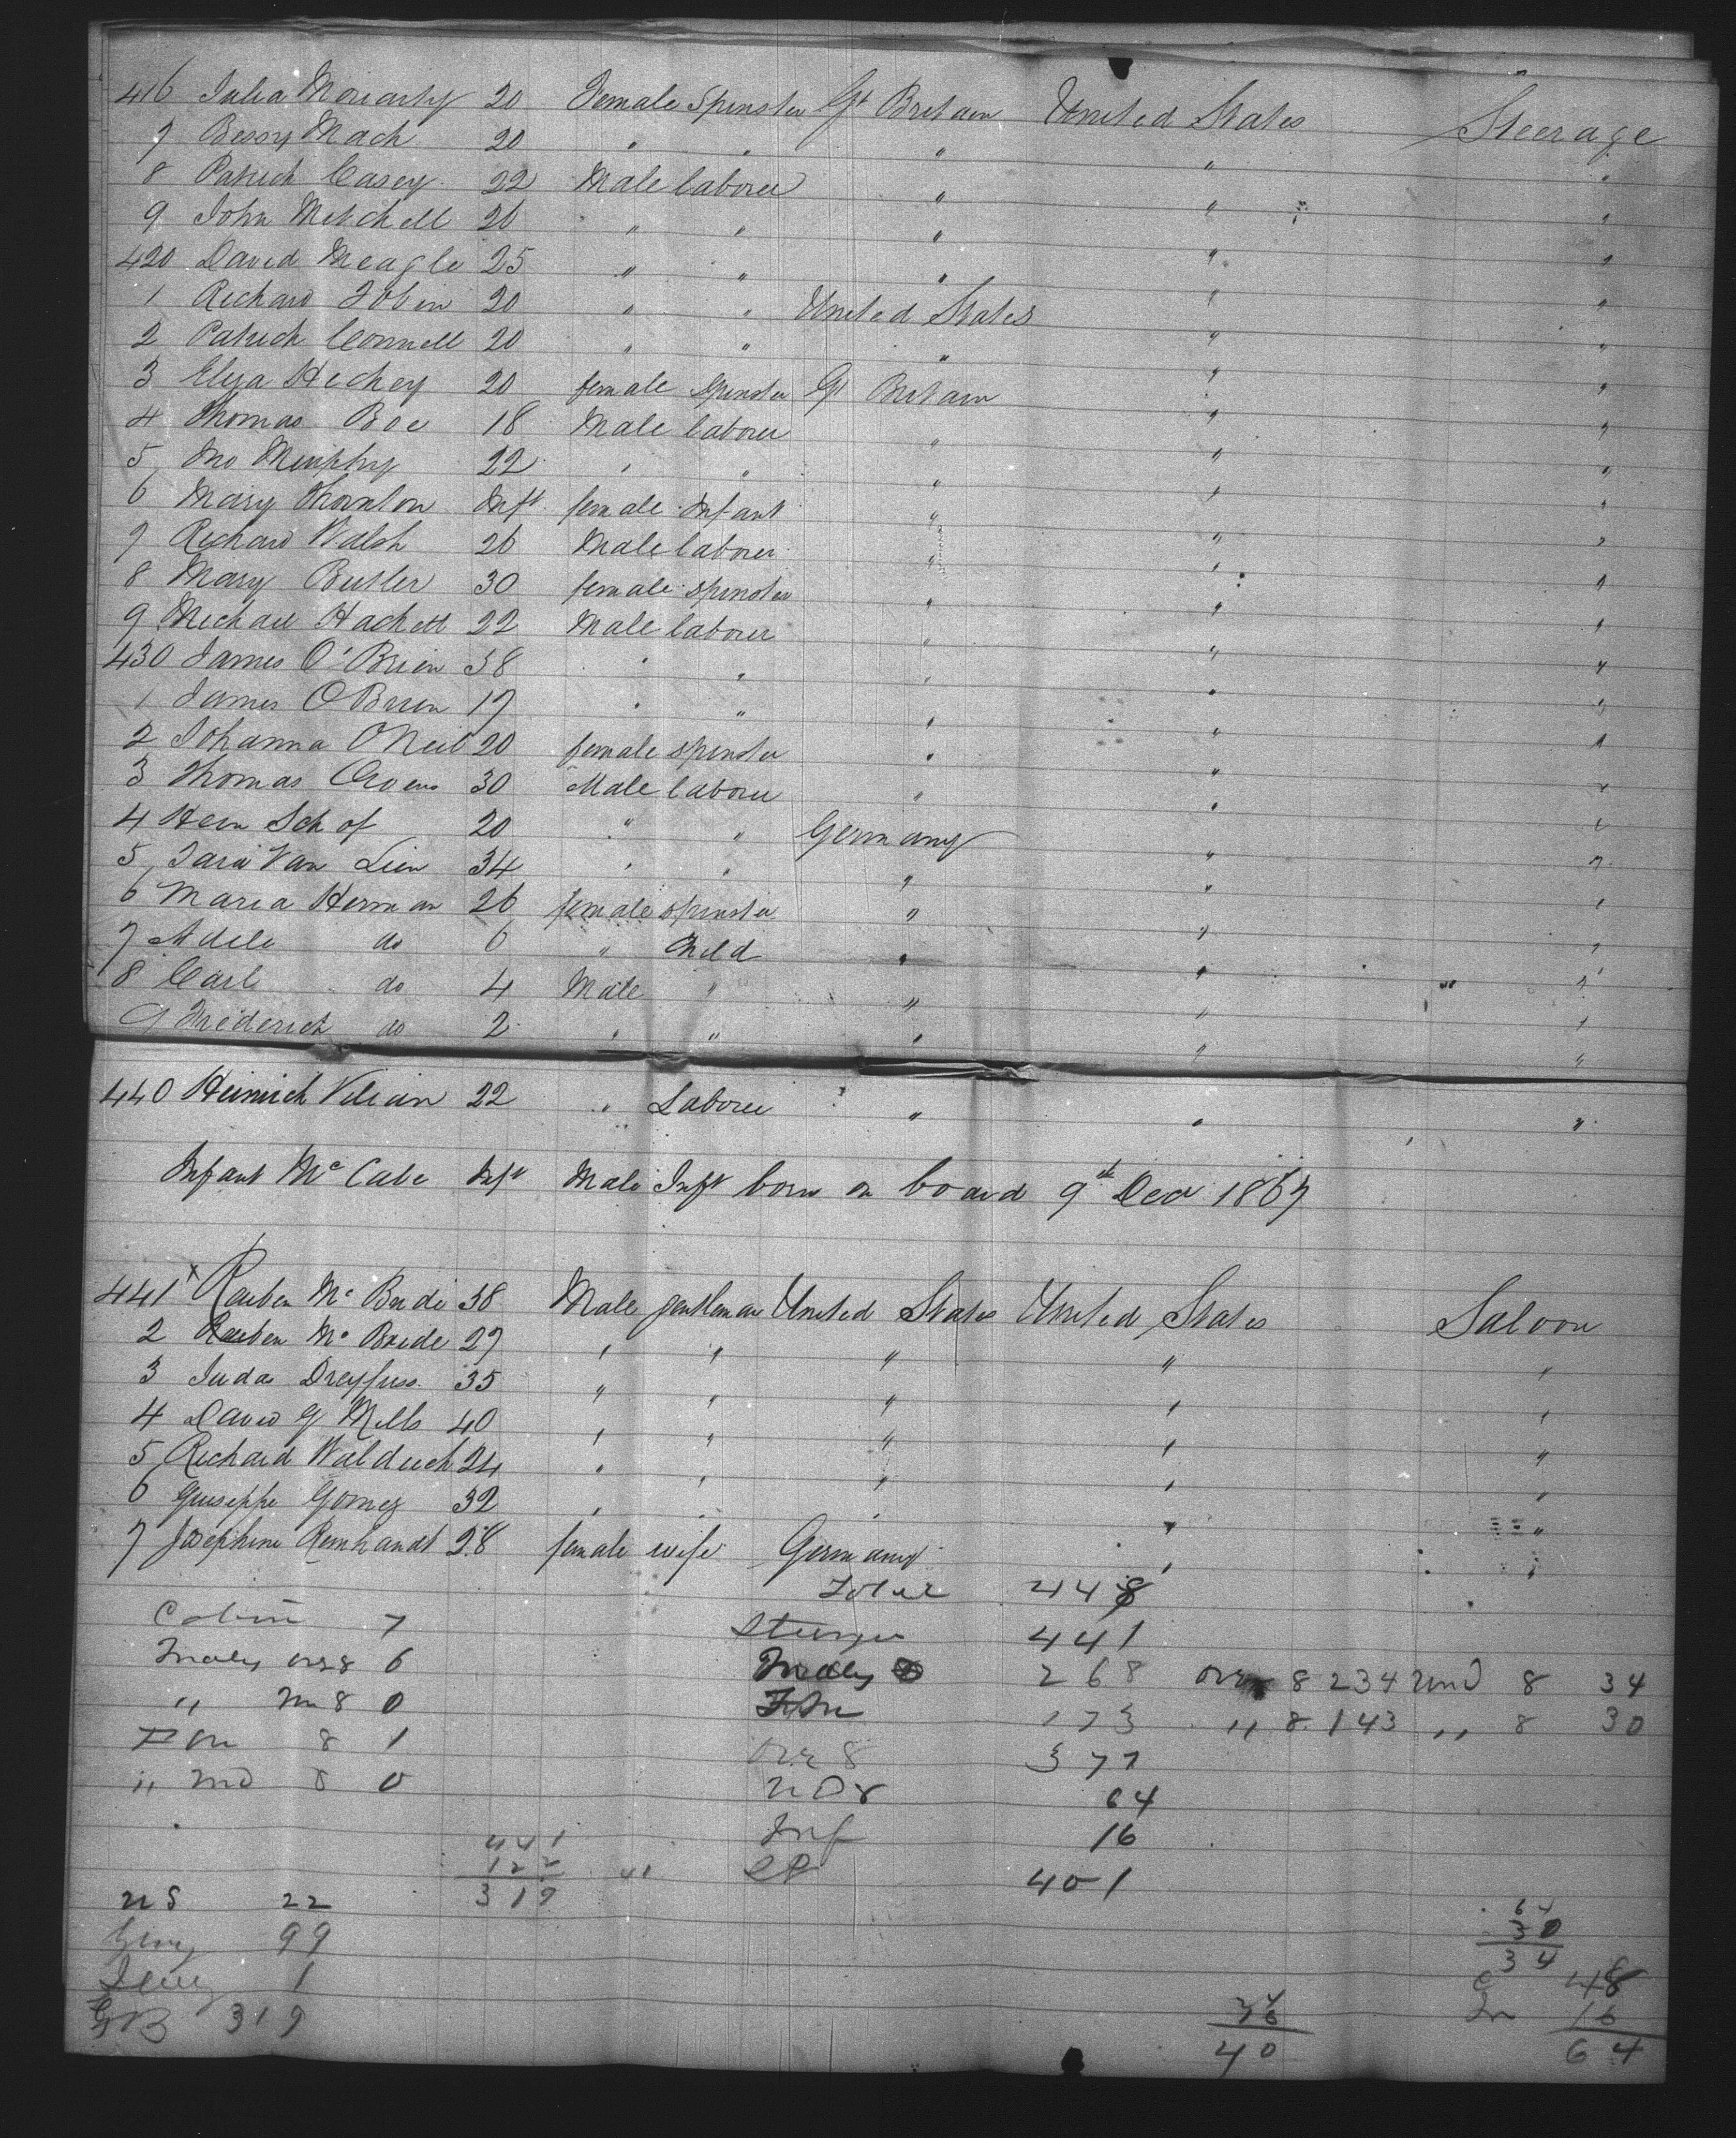 416 Julia Moriarty 20 Female Spinster Gt Britain United States Steerage
7 Bessy Mach 20 " " " " "
8 Patrick Casey 22 Male laborer " " "
9 John Mitchell 26 " " " " "
420 David Meagle 25 " " " " "
1 Richard Tobin 20 " " United States " "
2 Patrick Connell 20 " " " " "
3 Eliza Hickey 20 female Spinster Gt Britain " "
4 Thomas Boe 18 Male laborer " " "
5 Jno Murphy 22 " " " " "
6 Mary Thornton Inft female Infant " " "
7 Richard Walsh 26 Male laborer " " "
8 Mary Butler 30 female spinster " " "
9 Michael Hackett 22 Male laborer " " "
430 James O'Brien 38 " " " " "
1 James O Brien 17 " " " " "
2 Johanna O Neil 20 female spinster " " "
3 Thomas Owens 30 Male laborer " " "
4 Hern Schof 20 " " Germany " "
5 Van Lien 34 " " " " "
6 Maria Herman 26 female spinster " " "
7 Adele do 6 " Child " " "
8 Carl do 4 Male " " " "
9 Frederich do 2 " " " " "
440 Heinrich 22 " Laborer " " "
Infant Mc Cabe Inft Male Inft born on board 9th Decr 1867
441 x Reuben Mc Bride 38 Male gentleman United States United States Saloon
2 Reuben Mc Bride 27 " " " " "
3 Judas Dreyfuss 35 " " " " "
4 David G Mills 40 " " " " "
5 Richard Waldrich 24 " " " " "
6 Guiseppe Gomez 32 " " " " "
7 Josephine Reinhardt 28 female wife Germany " "
Total 448
Cabin 7 Steerage 441
Males over 8 6 Males 268 over 8 234 und 8 34
" Un 8 0 Fem 173 " 8 143 " 8 30
Fem 8 1 over 8 377
" und 8 0 und 8 64
Inf 16
441
122
319
401
US 22
Germy 99
1
GB 319
64
30
34
C 48
In 16
64
40